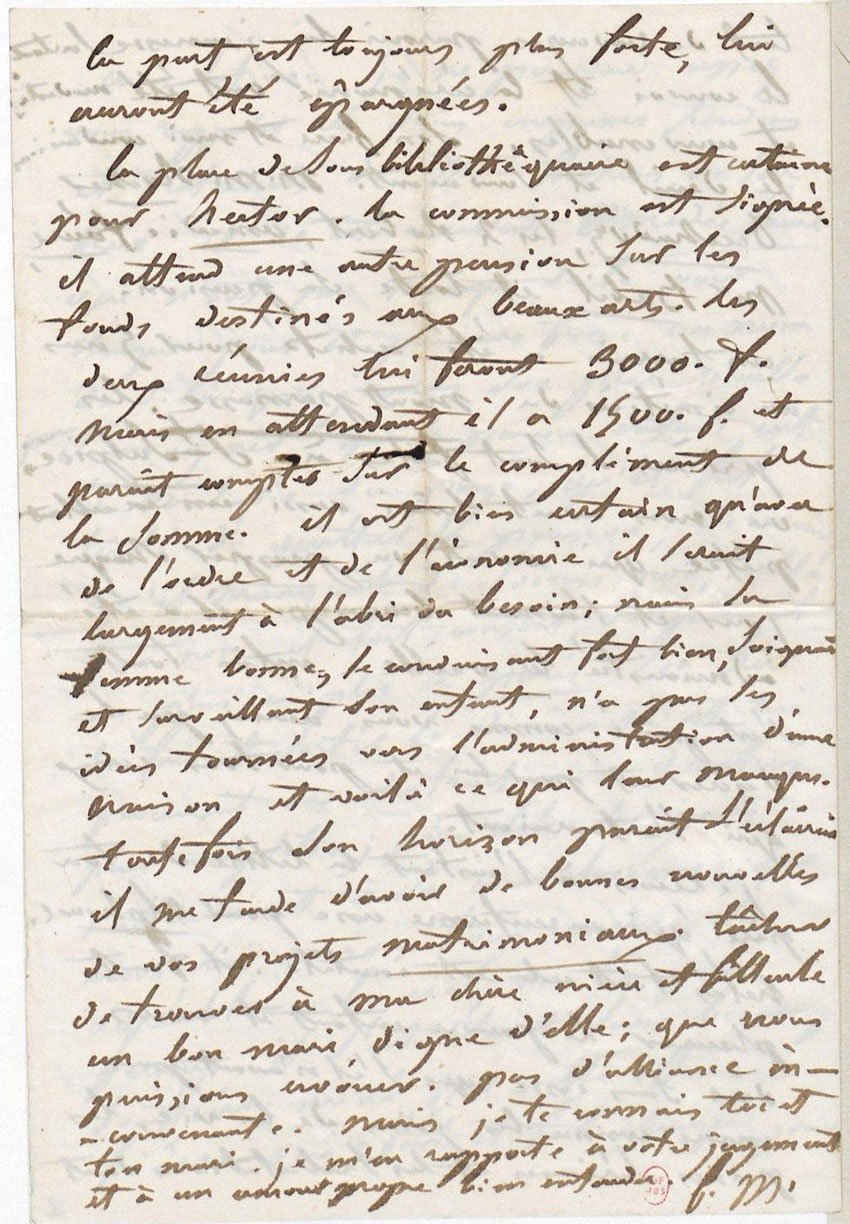 la part est toujours plus forte, lui
auront été épargnées.
la place de sous bibliothèquaire est certaine
pour hector. la commission est signée.
il attend une autre pension sur les
fonds destinés aux beaux arts. les
deux réunies lui feront 3000. f.
mais en attendant il a 1500. f. et
parait compter sur le complément de
la somme. il est bien certain qu'avec
de l'ordre et de l'économie il serait
largement à l'abri du besoin; mais sa
femme bonne, se conduisant fort bien, soignant
et surveillant son enfant, n'a pas les
idées tournées vers l'administration d'une
maison et voilà ce qui leur manque.
toutefois son horison parait s'éclaircir
il me tarde d'avoir de bonnes nouvelles
de vos projets matrimoniaux. tâchez
de trouver à ma chère nièce et filleule
un bon mari digne d'elle; que nous
puissions avouer. pas d'alliance in-
-convenante. mais je te connais toi et
ton mari. je m'en rapporte à votre jugement
et à un amour propre bien entendu. f. M.